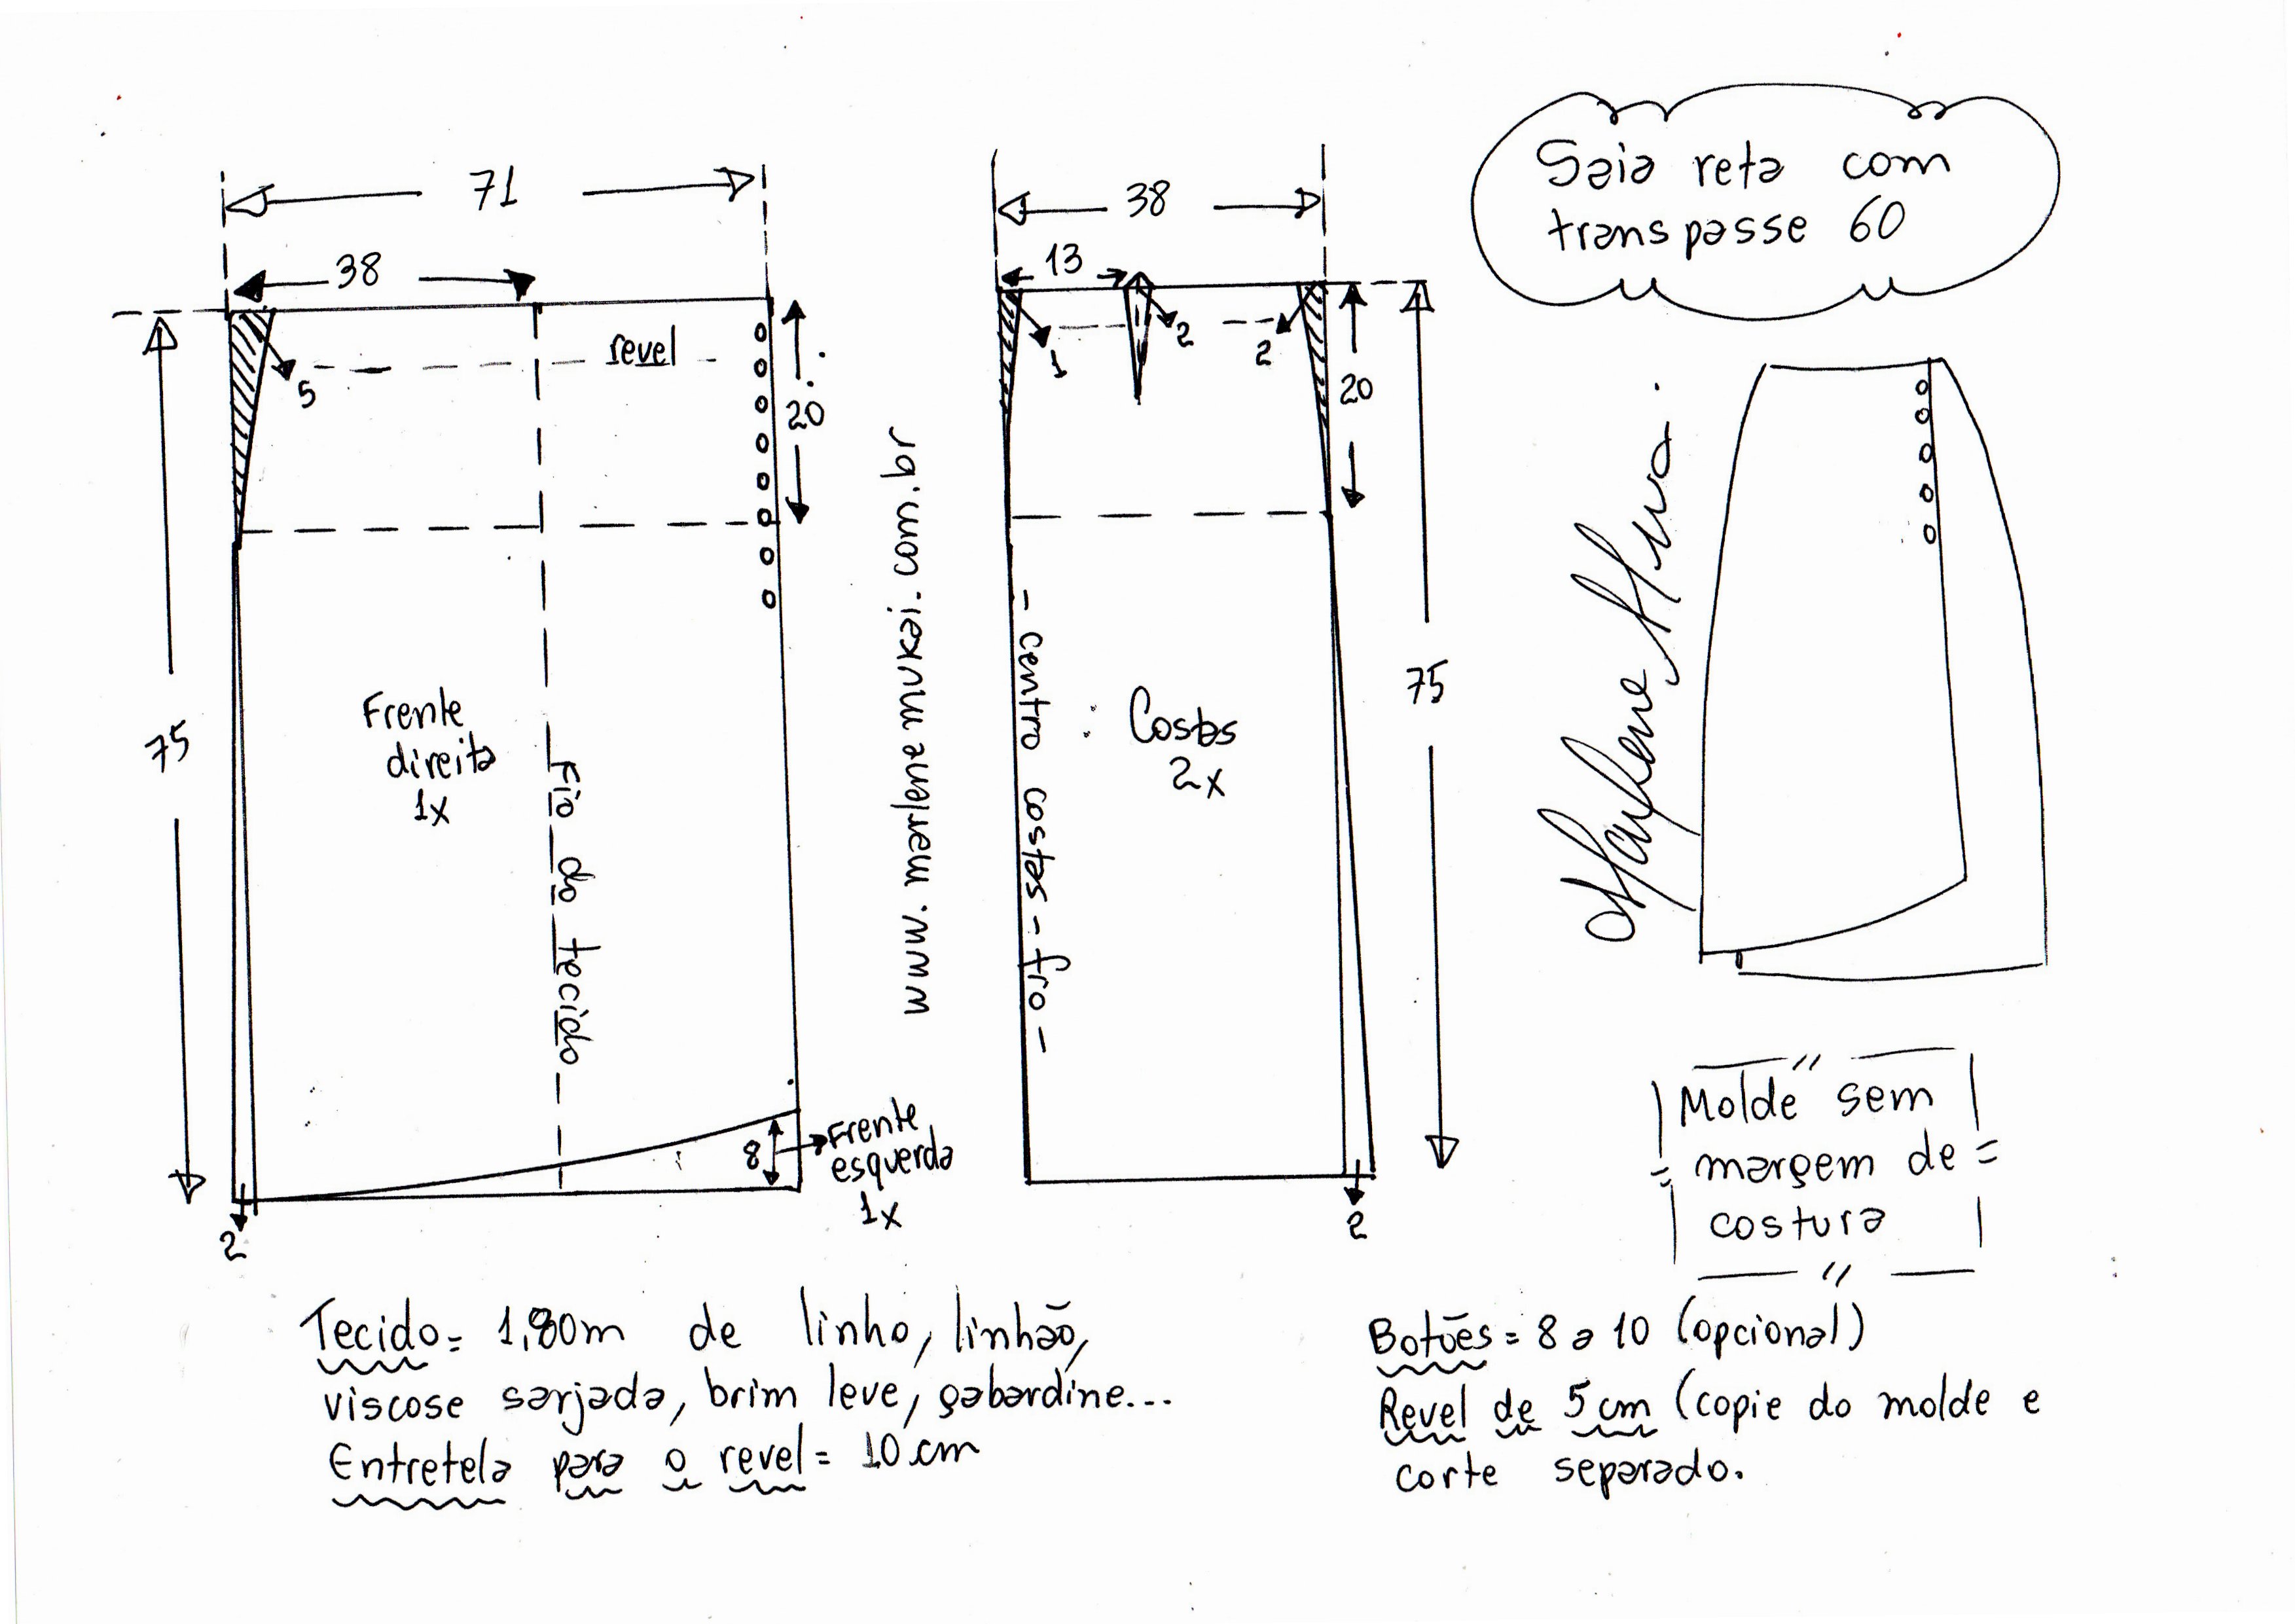 Saia reta com
transpasse 60
71
38
5
revel
20
75
Frente
direita
1x
Fio do tecido
8
Frente
esquerda
1x
2
www.marlenemukai.com.br
38
13
1
2
2
20
75
- centro costas - fio -
Costas
2x
2
Marlene Mukai
Molde sem
margem de
costura
Tecido = 1,80m de linho, linhão,
viscose sarjada, brim leve, gabardine...
Entretela para o revel = 10 cm
Botões = 8 a 10 (opcional)
Revel de 5 cm (copie do molde e
corte separado.